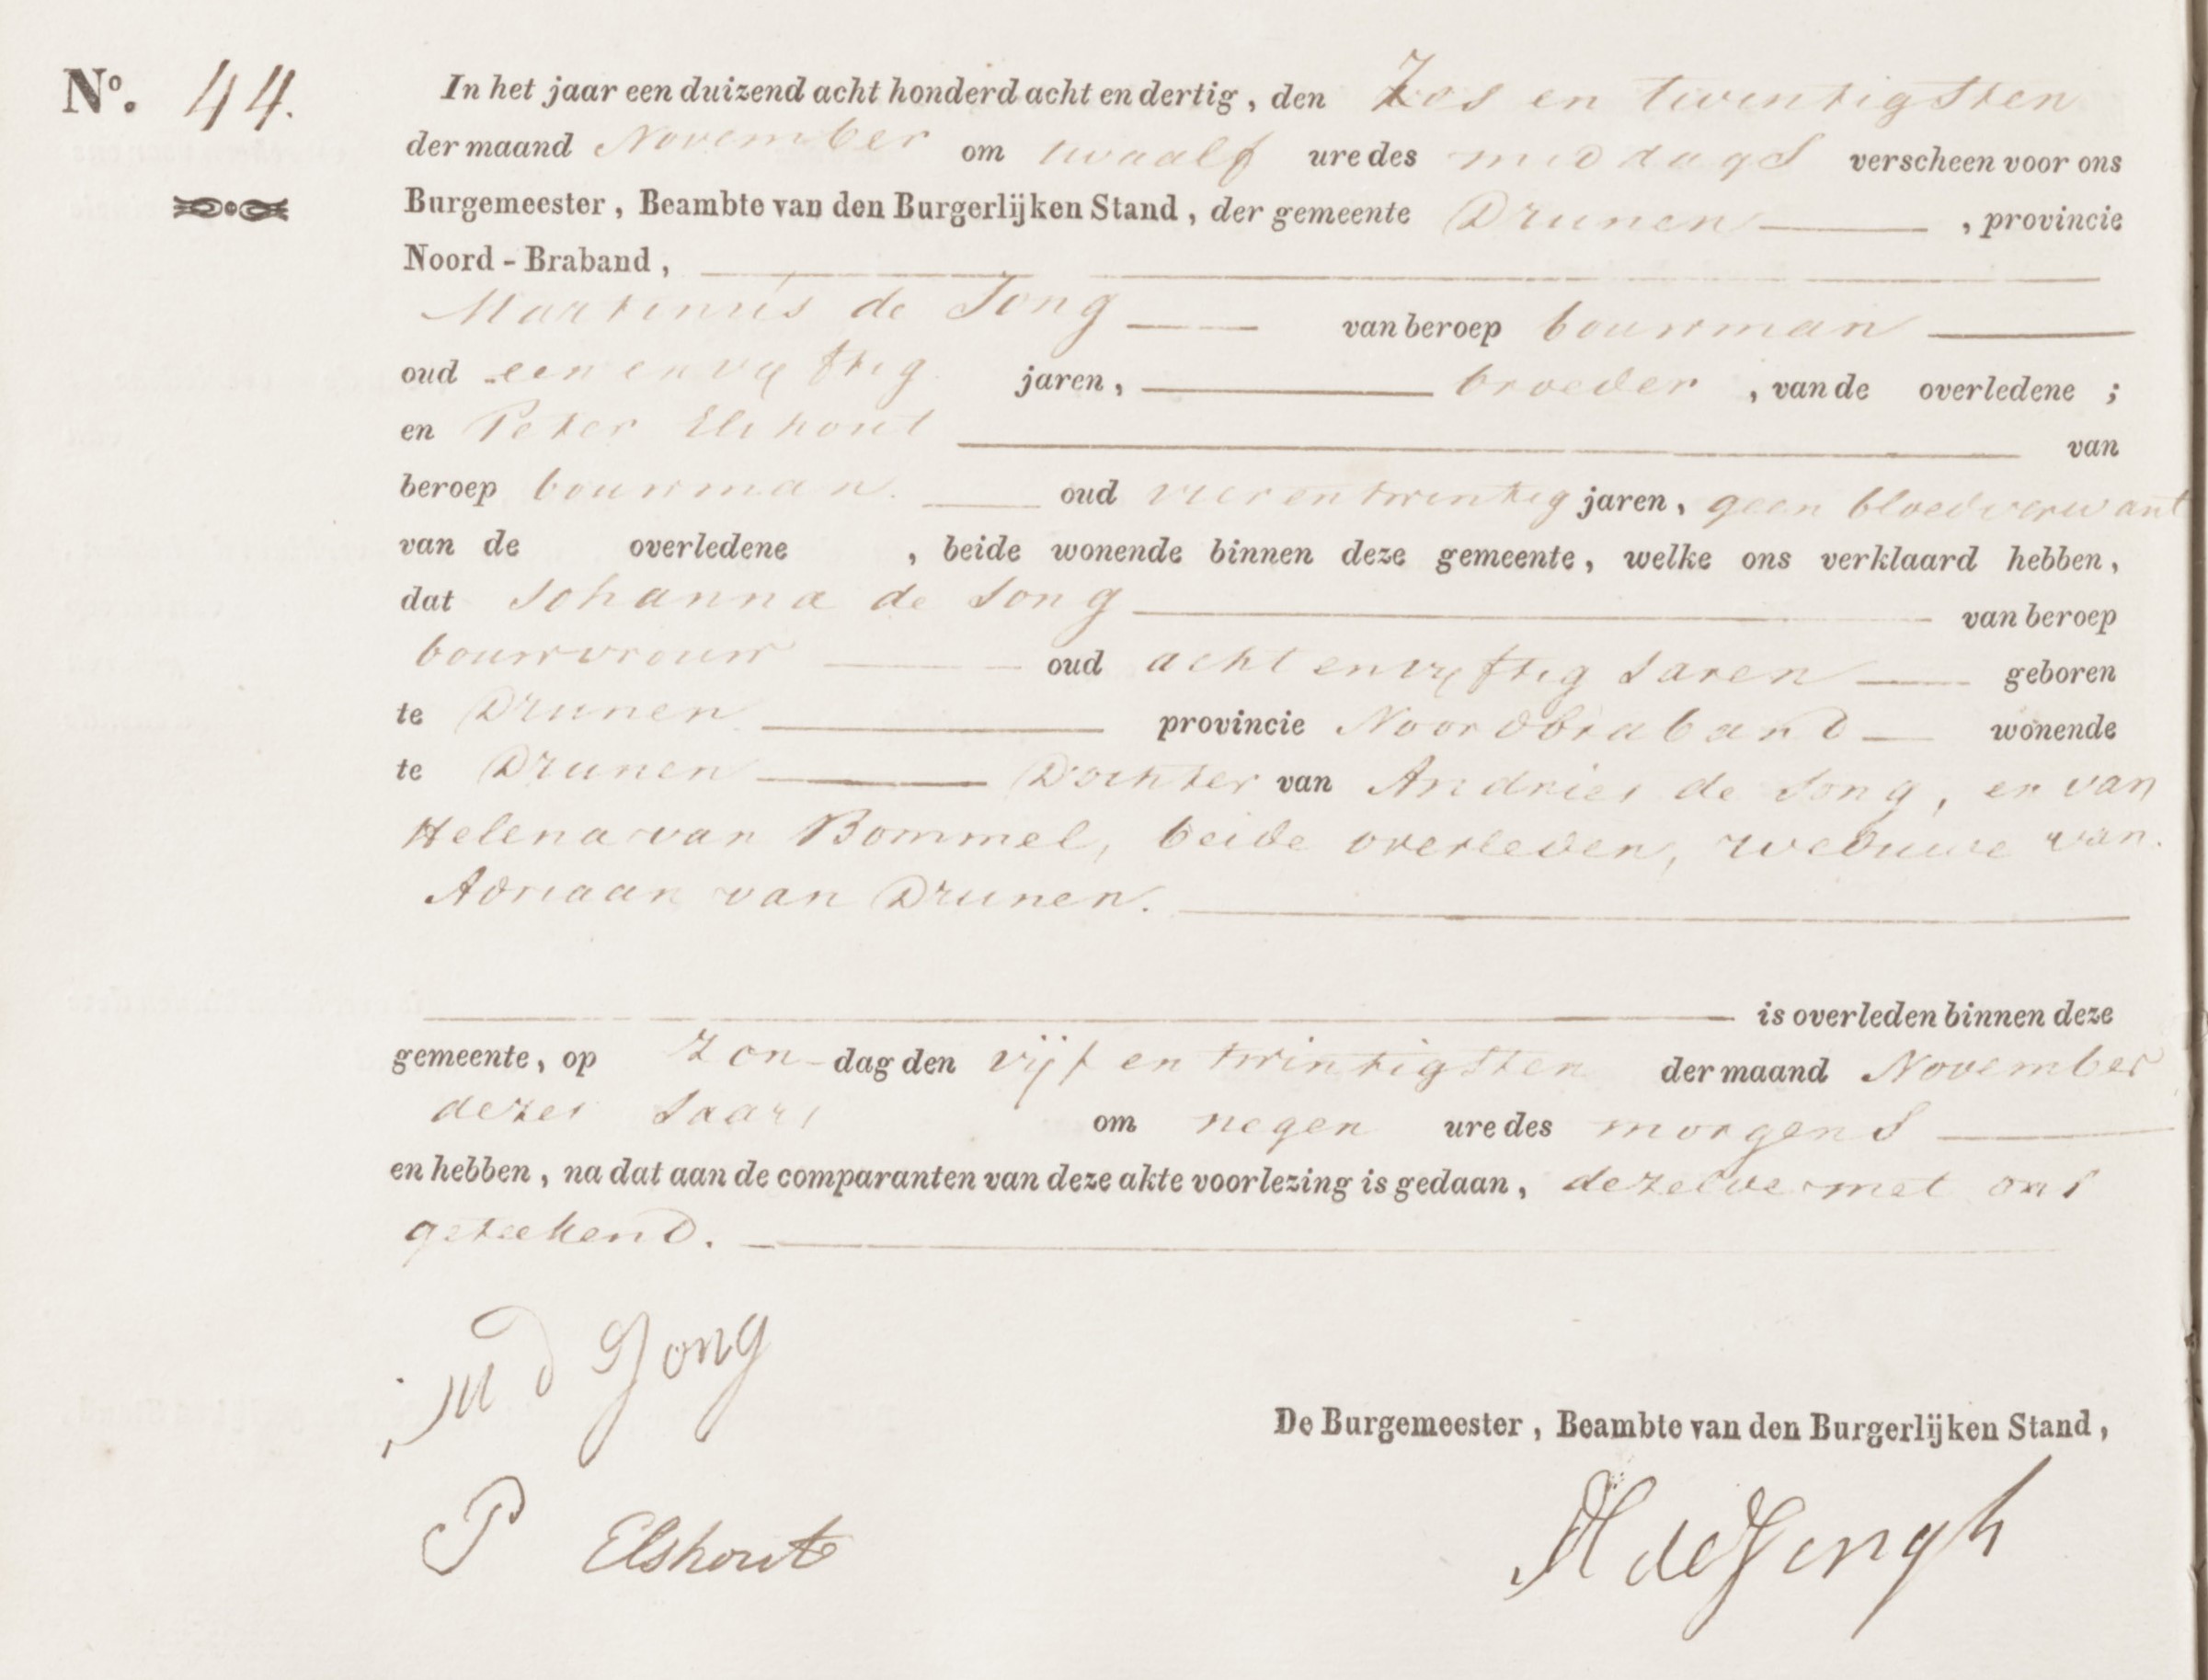 No. 44.
In het jaar een duizend acht honderd acht en dertig, den Zes en twintigsten
der maand November om twaalf ure des middags verscheen voor ons
Burgemeester, Beambte van den Burgerlijken Stand, der gemeente Drunen, provincie
Noord-Braband,
Martinus de Jong van beroep bouwman
oud een en vyftig jaren, broeder, van de overledene;
en Peter Elshout van
beroep bouwman. oud vier en twintig jaren, geen bloedverwant
van de overledene, beide wonende binnen deze gemeente, welke ons verklaard hebben,
dat Johanna de Jong van beroep
bouwvrouw oud acht en vyftig Jaren geboren
te Drunen provincie Noordbraband wonende
te Drunen Dochter van Andries de Jong, en van
Helena van Bommel, beide overleden, weduwe van
Adriaan van Drunen.
is overleden binnen deze
gemeente, op Zon-dag den vijf en twintigsten der maand November
dezes Jaars om negen ure des morgens
en hebben, na dat aan de comparanten van deze akte voorlezing is gedaan, dezelve met ons
geteekend.
M d Jong
De Burgemeester, Beambte van den Burgerlijken Stand,
P Elshout